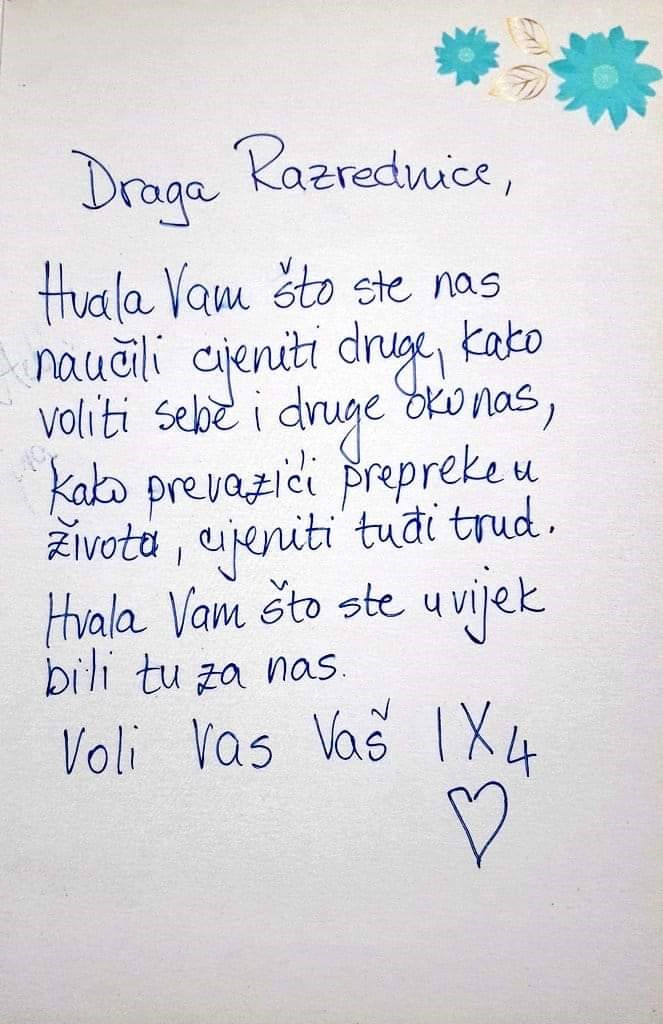 Draga Razrednice,
Hvala Vam što ste nas
naučili cijeniti druge, kako
voliti sebe i druge oko nas,
kako prevazići prepreke u
života, cijeniti tuđi trud.
Hvala Vam što ste uvijek
bili tu za nas.
Voli Vas Vaš IX4